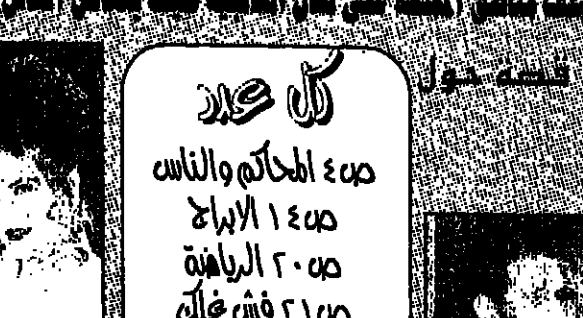 قصه حول
كل عدد
ص٤ المحاكم والناس
ص١٤ الابراج
ص٢٠ الرياضة
ص٢١ فش غلك